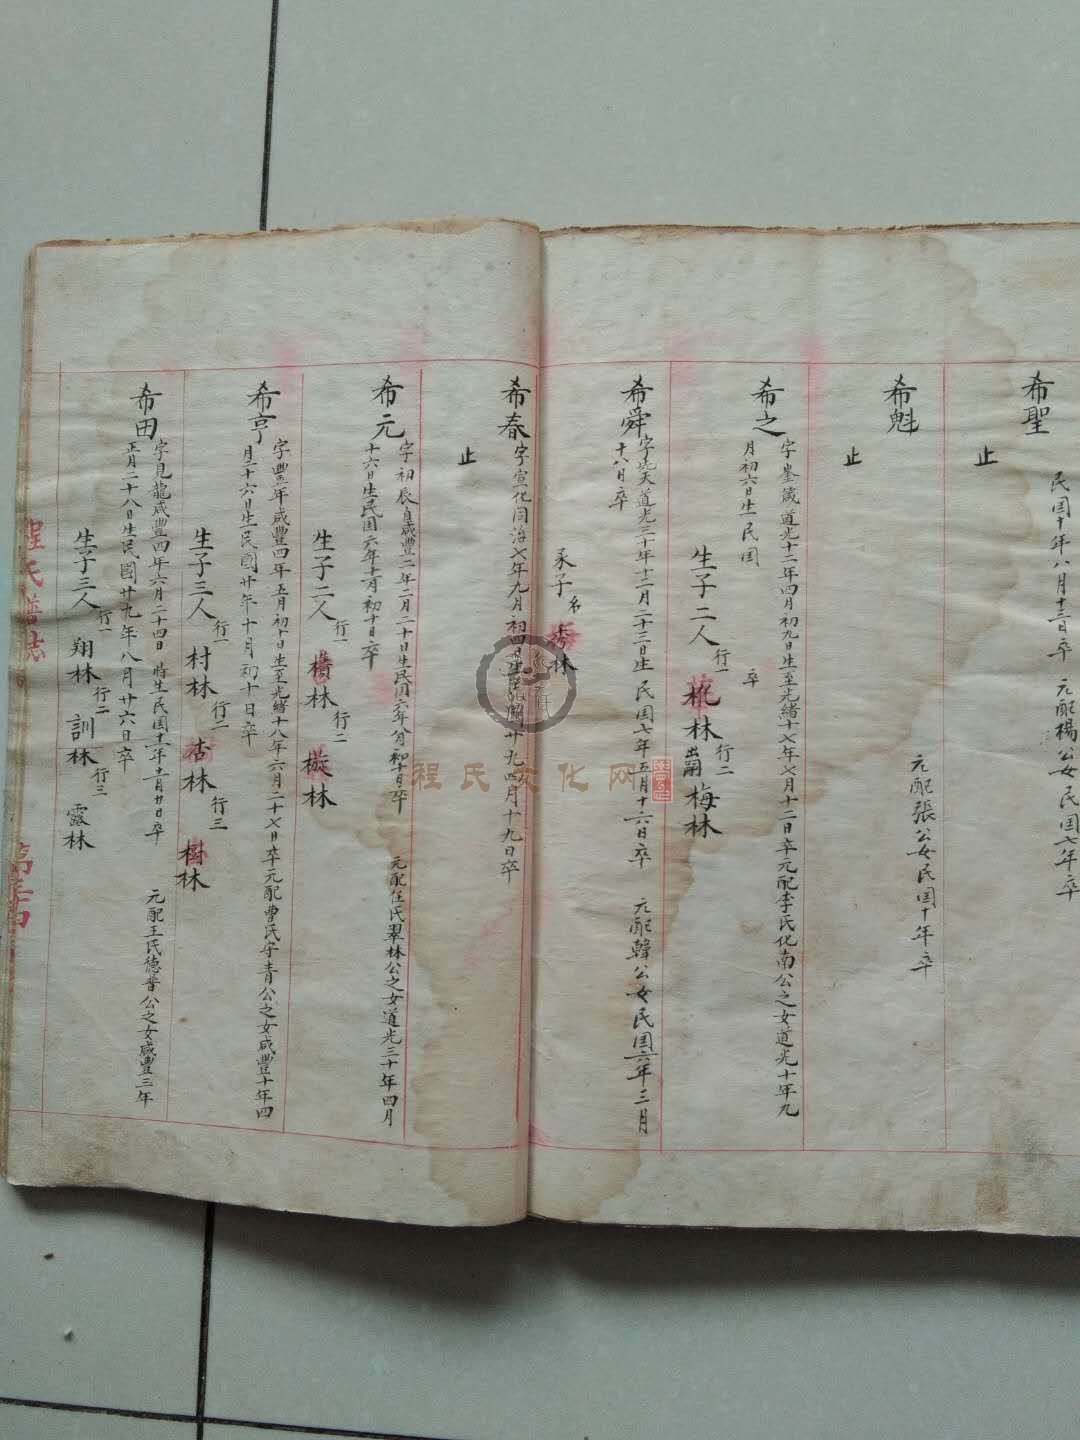 希聖
民囯十年八月十三日卒 元配楊公女民囯七年卒
止
希魁
元配張公女民囯十年卒
止
希之
字鉴箴道光十二年四月初九日生至光緒十七年七月十二日卒元配李氏化南公之女道光十年九
月初六日生民囯 卒
生子二人 行一 桃林 行二 出嗣 梅林
希舜
字尧天道光三十年十二月二十三日生 民囯七年五月十六日卒 元配韓公女民囯六年三月
十八日卒
承子名 秀林
希春
字宣化同治七年九月初四日生民國廿九四月十九日卒
止
希元
字初辰自咸豐二年二月二十日生民囯六年八月初十日卒 元配任氏翠林公之女道光三十年四月
十六日生民囯六年十一月初十日卒
生子二人 行一 林 行二 林
希亨
字豐年咸豐四年五月初十日生至光緒十八年六月二十七日卒元配曹氏守青公之女咸豐十年四
月二十六日生民國廿年十月初十日卒
生子三人 行一 村林 行二 杏林 行三 樹林
希田
字見龍咸豐四年六月二十四日 時生民囯十一年十一月廿日卒 元配王氏德普公之女咸豐三年
正月二十八日生民國廿九年八月廿六日卒
生子三人 行一 翔林 行二 訓林 行三 露林
程氏譜志
程氏文化网